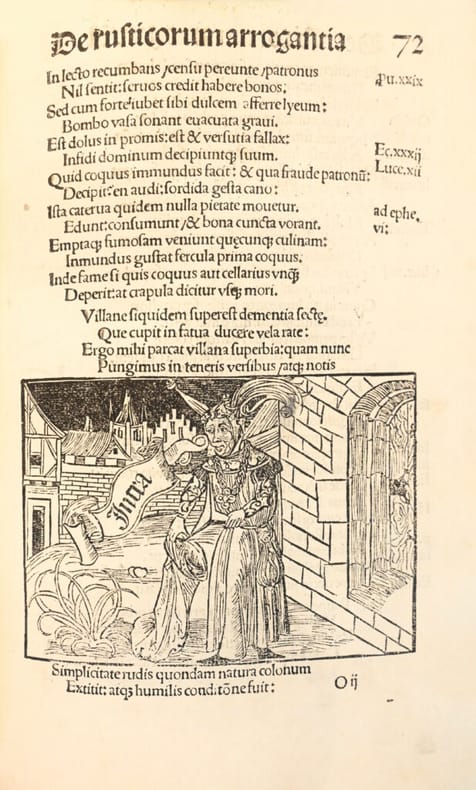 De rusticorum arrogantia 72
In lecto recumbans /censu pereunte /patronus
Nil sentit: seruos credit habere bonos.
pu.xxix
Sed cum forte iubet sibi dulcem afferre lyeum:
Bombo vasa sonant euacuata graui.
Est dolus in promis: est & versutia fallax:
Infidi dominum decipiuntq; suum.
Ec.xxxij
Quid coquus immundus facit: & qua fraude patronū:
Luce.xii
Decipit: en audi: sordida gesta cano:
Ista caterua quidem nulla pietate mouetur.
ad ephe.
Edunt: consumunt /& bona cuncta vorant.
vi:
Emptaq; fumosam veniunt quęcunq; culinam:
Inmundus gustat fercula prima coquus.
Inde fame si quis coquus aut cellarius vnq̄
Deperit: at crapula dicitur vsq; mori.
Villane siquidem superest dementia sectę.
Que cupit in fatua ducere vela rate:
Ergo mihi parcat villana superbia: quam nunc
Pungimus in teneris versibus /atq; notis
Intra
Simplicitate rudis quondam natura colonum
Extitit: atq; humilis conditōne fuit:
O ij